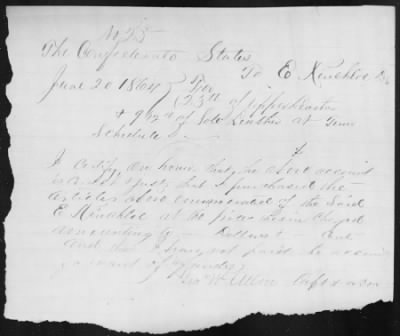 No 25
The Confederate States
To E Kinchloe Dr
June 20 1864 For
23 lbs of upper leather
& 9 lbs of Sole Leather at
Schedule
I certify, on honor, that the above account
is correct & just; that I purchased the
articles above enumerated of the Said
E Kinchloe at the prices therein charged
amounting to
and that I have not paid the account
want of funds
Capt &